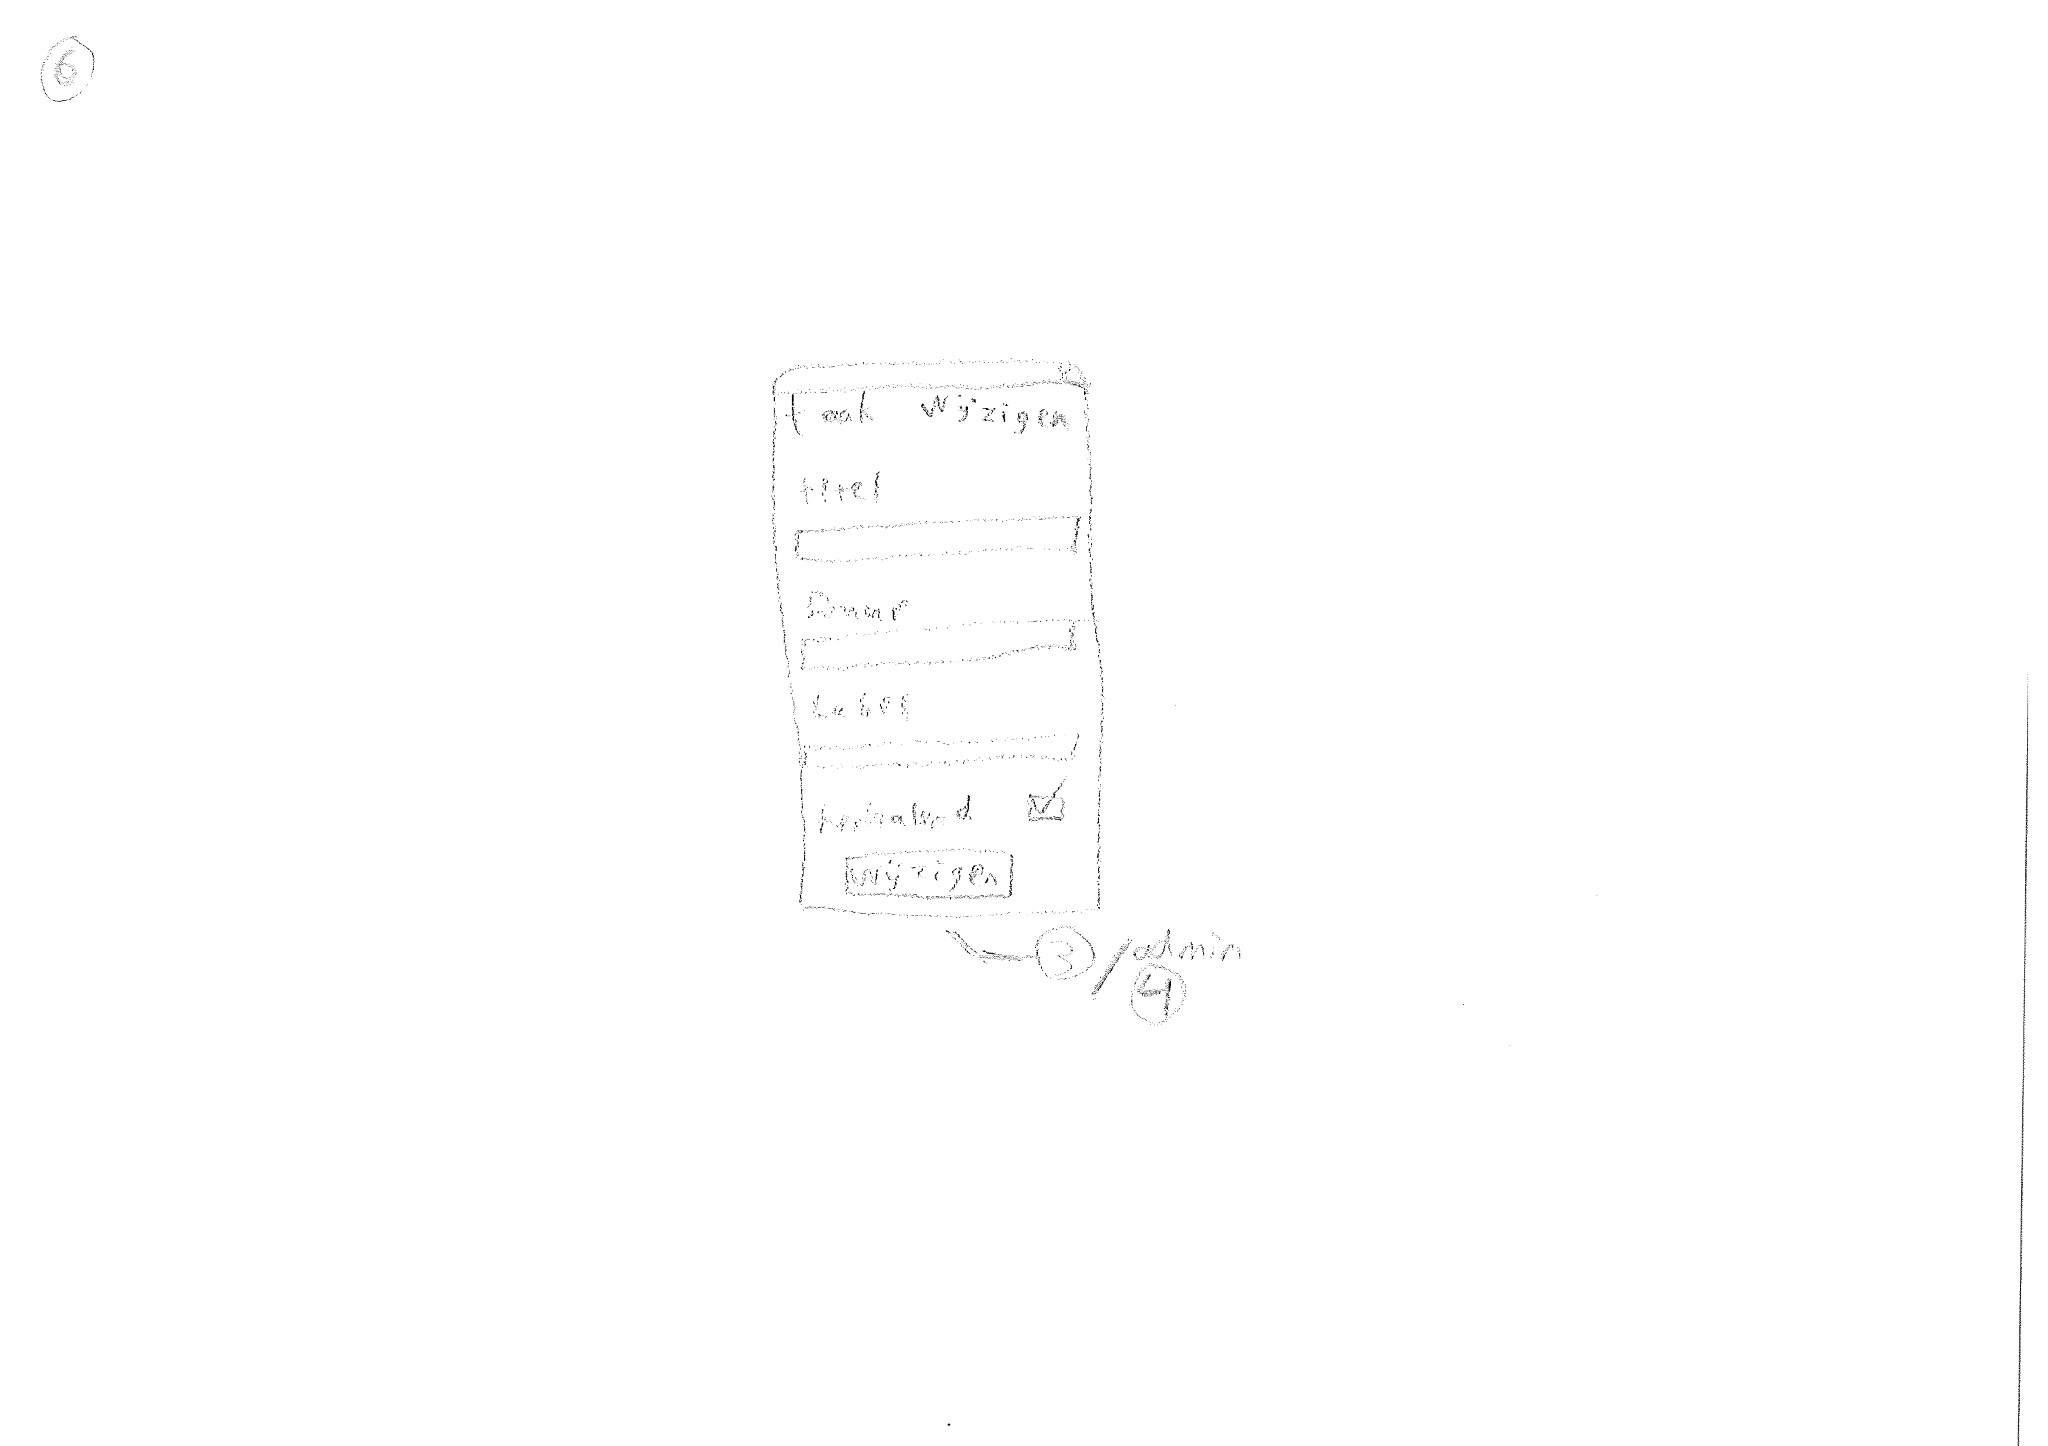 6
taak wijzigen
titel
Label
herhalend
wijzigen
3 / admin
4